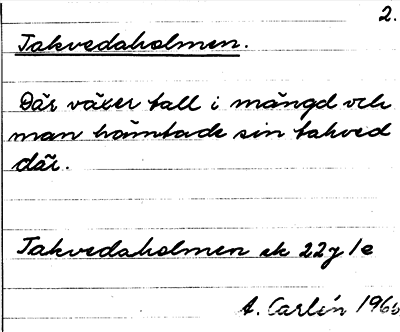 2.
Takvedaholmen.
Där växer tall i mängd och
man hämtade sin takved
där.
Takvedaholmen ek 22y 1e
A. Carlén